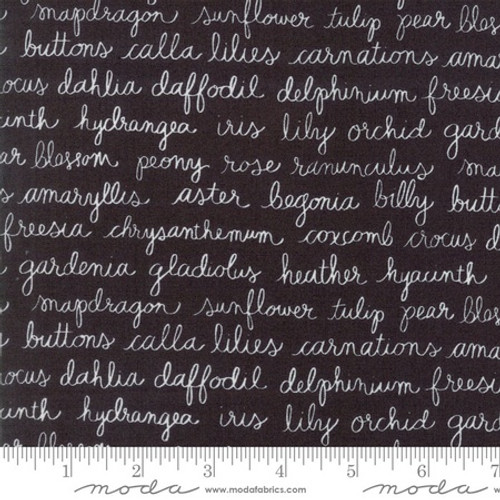 snapdragon sunflower tulip pear bles
buttons calla lilies carnations ama
ocus dahlia daffodil delphinium freesia
cinth hydrangea iris lily orchid gard
ar blossom peony rose ranunculus sna
s amaryllis aster begonia billy butt
freesia chrysanthemum coxcomb crocus d
gardenia gladiolus heather hyacinth
snapdragon sunflower tulip pear bles
buttons calla lilies carnations ama
ocus dahlia daffodil delphinium freesi
cinth hydrangea iris lily orchid gard
ar blossom
1 2 3 4 5 6 7
moda www.modafabrics.com moda